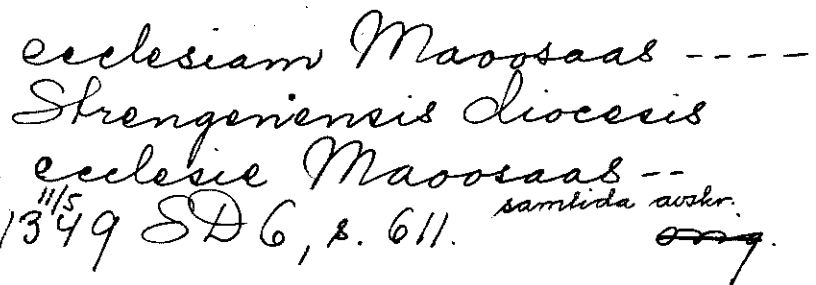 ecclesiam Maoosaas ----
Strengenensis diocesis
ecclesie Maoosaas --
11/5 1349 SD 6, s. 611. samtida avskr.